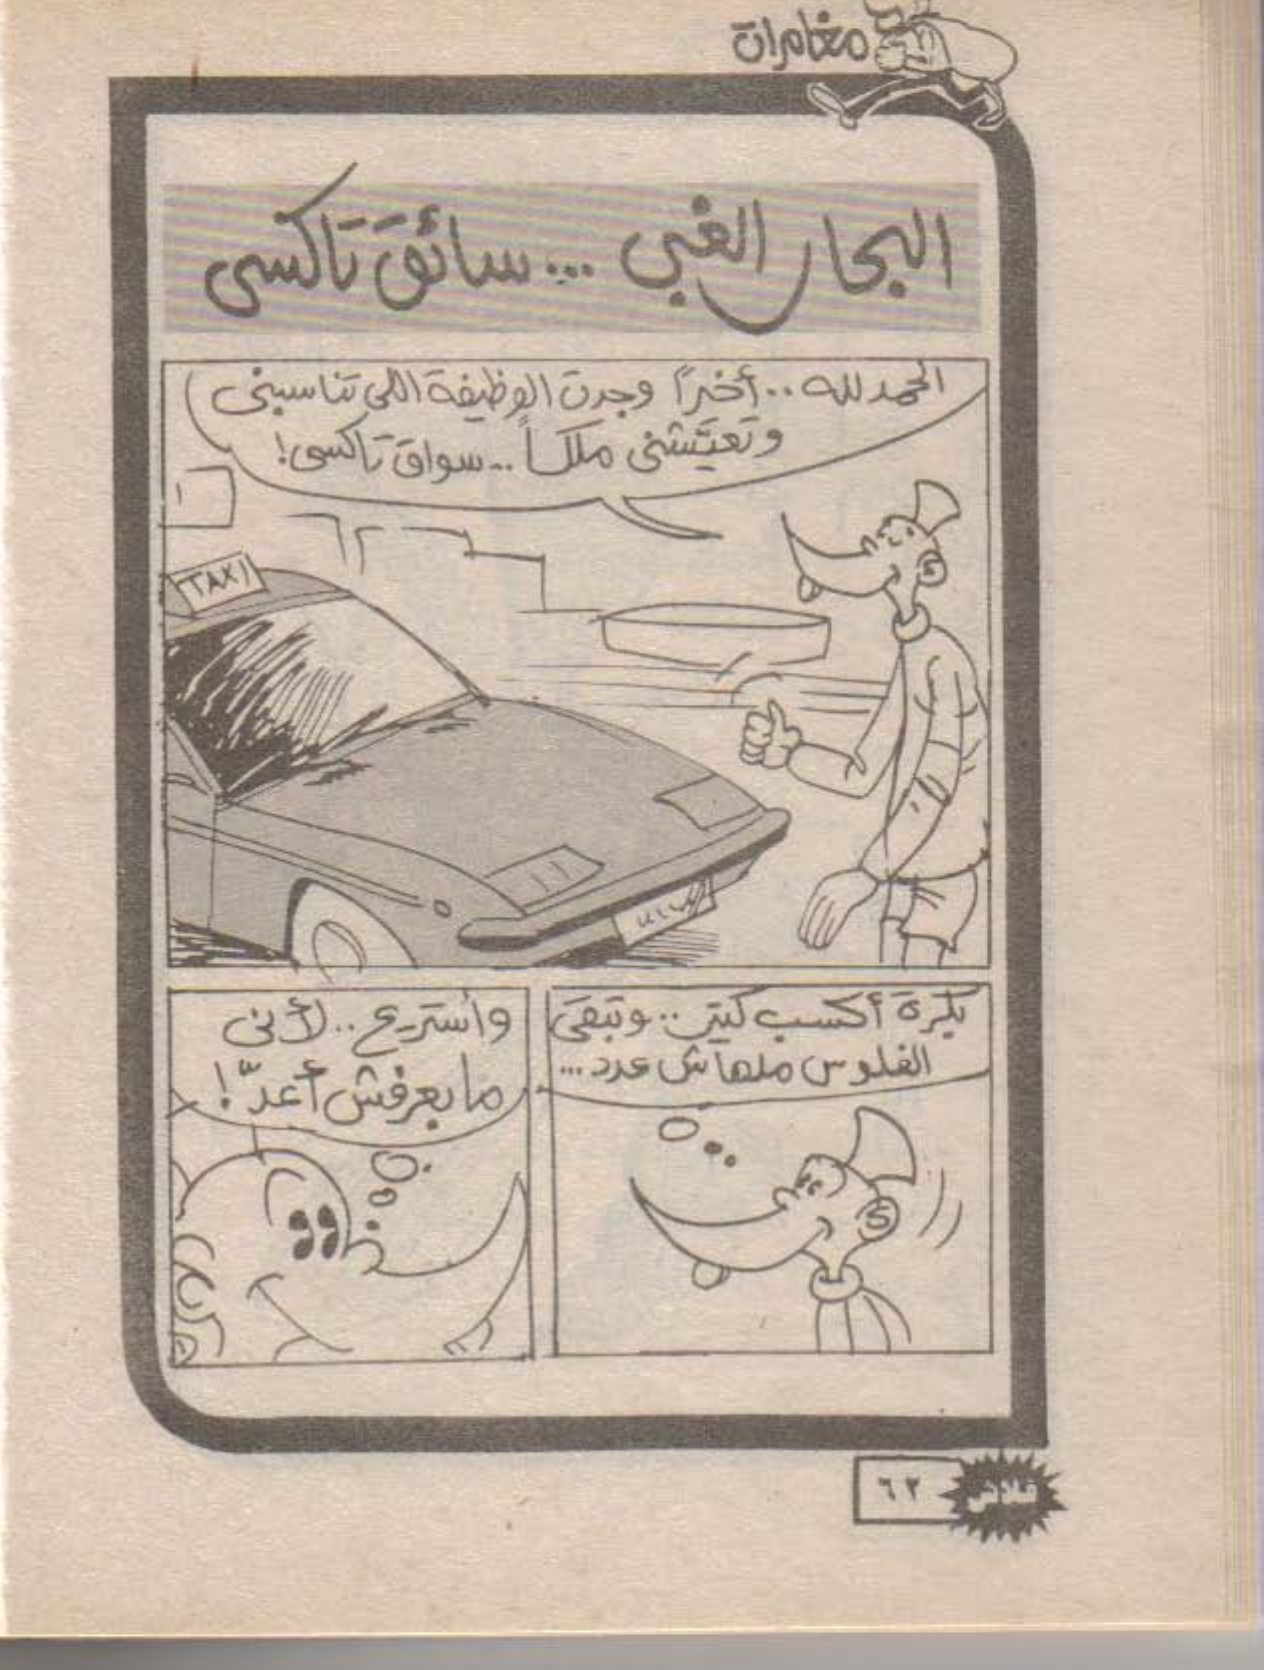 مغامرات
البحار الغبي ... سائق تاكسى
الحمد لله .. أخيراً وجدت الوظيفة اللى تناسبنى
وتعيّشنى ملكاً .. سواق تاكسى!
TAXI
بكرة أكسب كتير .. وتبقى
الفلوس ملهاش عدد ...
وأستريح .. لأنى
ما بعرفش أعدّ!
٦٢
فلاش